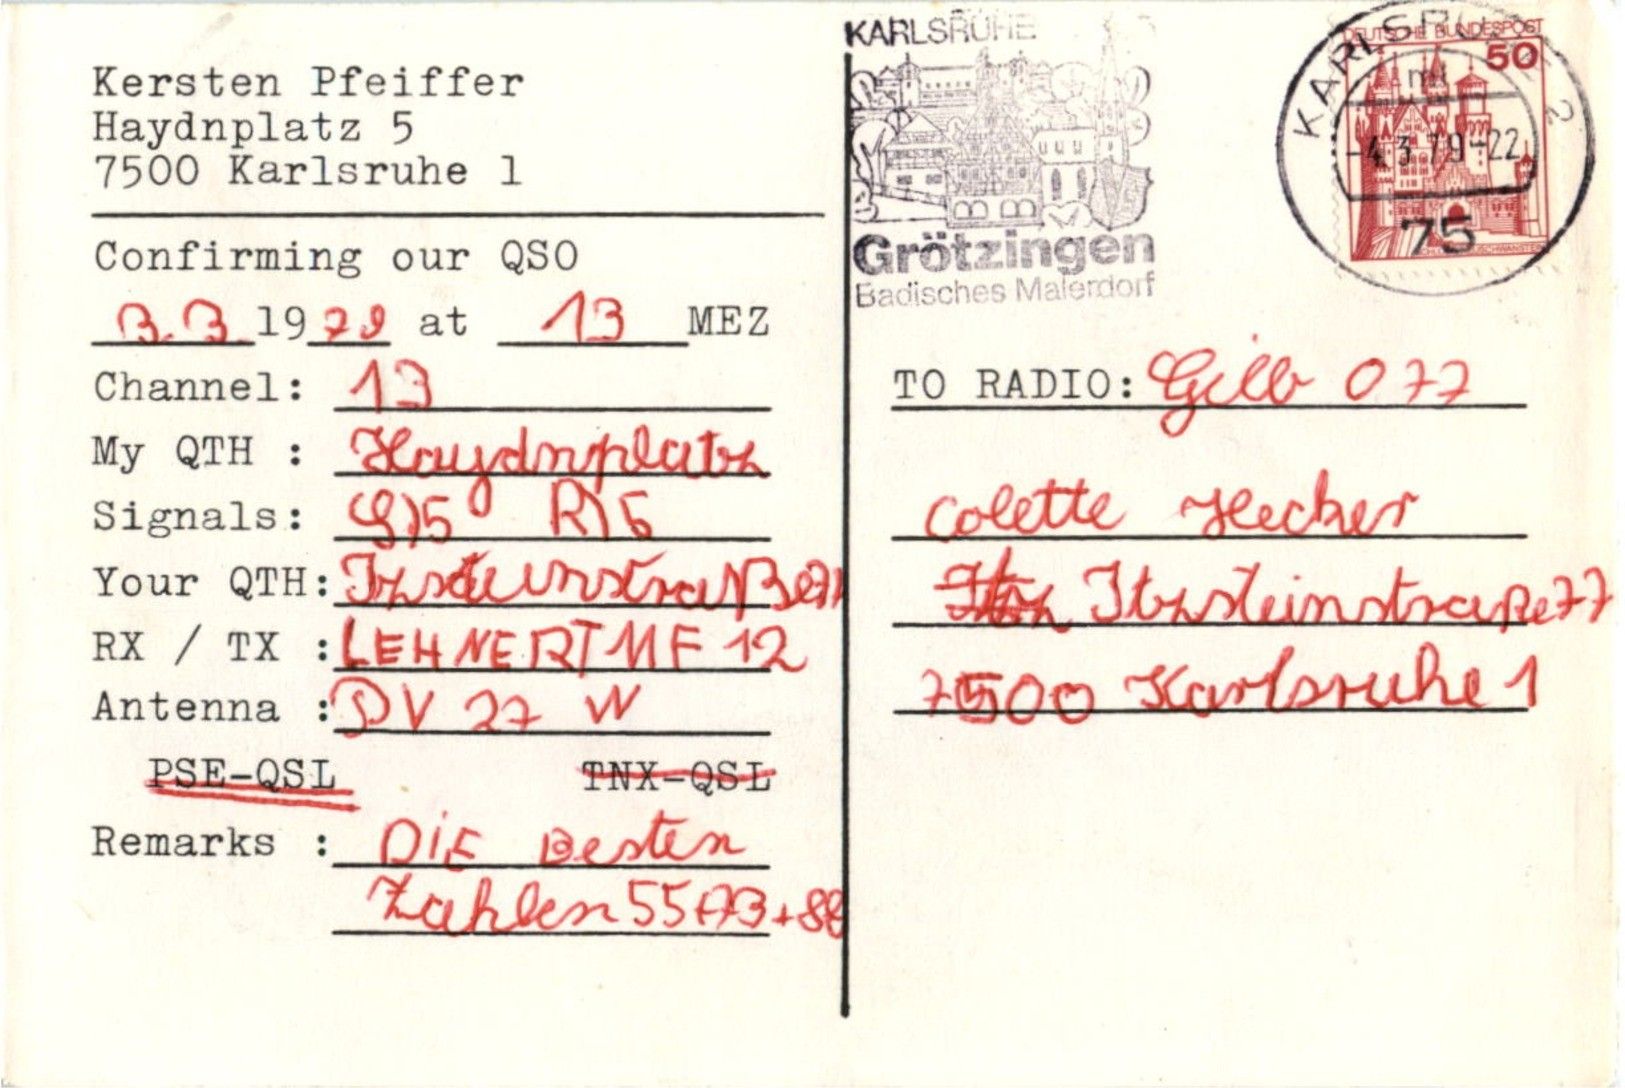 Kersten Pfeiffer
Haydnplatz 5
7500 Karlsruhe 1
Confirming our QSO
3.3.1979 at 13 MEZ
Channel: 13
My QTH : Haydnplatz
Signals: S)5 R)5
Your QTH: Itzsteinstraße 77
RX / TX : LEHNERT MF 12
Antenna : DV 27 W
PSE-QSL TNX-QSL
Remarks : DiE Besten
Zahlen 55+73+88
KARLSRUHE
Grötzingen
Badisches Malerdorf
DEUTSCHE BUNDESPOST
50
KARLSRUHE 2
mk
-4.3.79-22
75
TO RADIO: Gilb 077
Colette Hecker
Itzsteinstraße 77
7500 Karlsruhe 1